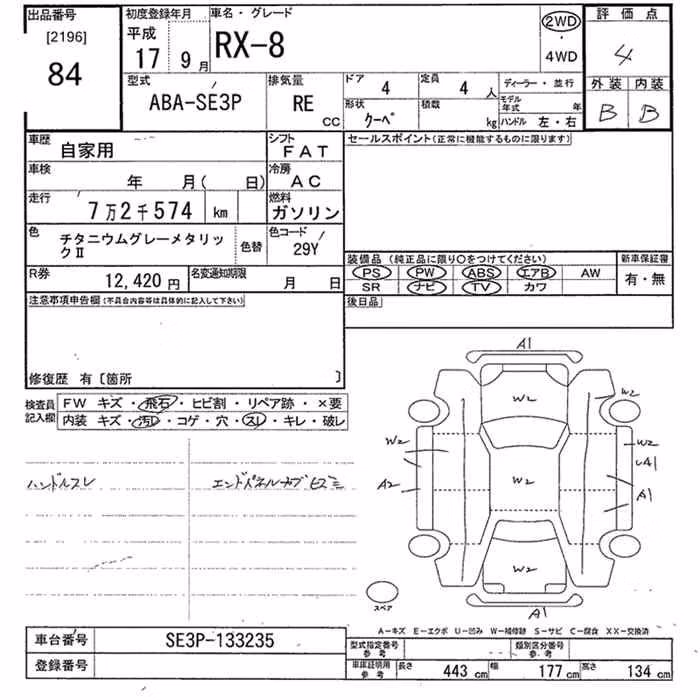 出品番号 初度登録年月 車名・グレード 2WD 評価点
[2196] 84 平成 17 9月 RX-8 ・ 4WD 4
型式 排気量 ドア 4 定員 4人 ディーラー・並行 外装 内装
ABA-SE3P RE CC 形状 クーペ 積載 kg モデル年式 年 ハンドル 左・右 B B
車歴 自家用 シフト FAT セールスポイント(正常に機能するものに限ります)
車検 年 月( 日) 冷房 AC
走行 7万2千574 km 燃料 ガソリン
色 チタニウムグレーメタリックⅡ 色替 色コード 29Y
装備品(純正品に限り○をつけてください) 新車保証書
PS PW ABS エアB AW 有・無
R券 12,420円 名変通知期限 月 日 SR ナビ TV カワ
注意事項申告欄(不具合内容等は具体的に記入して下さい) 後日品
修復歴 有〔箇所 〕
検査員記入欄 FW キズ・飛石・ヒビ割・リペア跡・×要
内装 キズ・汚レ・コゲ・穴・スレ・キレ・破レ
ハンドルスレ
A1
W2 W2
W2 W2
A2 W2 A1
A1
W2
A1
スペア
A-キズ E-エクボ U-凹み W-補修跡 S-サビ C-腐食 XX-交換済
車台番号 SE3P-133235 型式指定番号 参考 類別区分番号 参考
登録番号 車庫証明用 参考 長さ 443 cm 幅 177 cm 高さ 134 cm